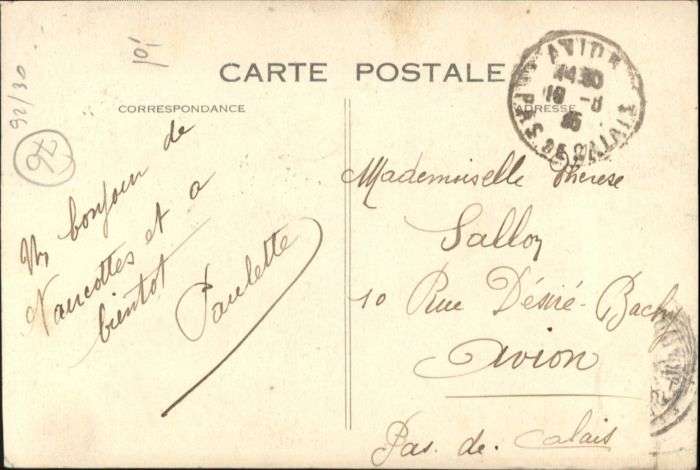 92/30
101
92
CARTE POSTALE
CORRESPONDANCE
ADRESSE
AVION
PAS DE CALAIS
Un bonjour de
Vaucottes et a
bientot
Paulette
Mademoiselle Therese
Salloy
10 Rue Désiré-Bachy
Avion
Pas. de. Calais